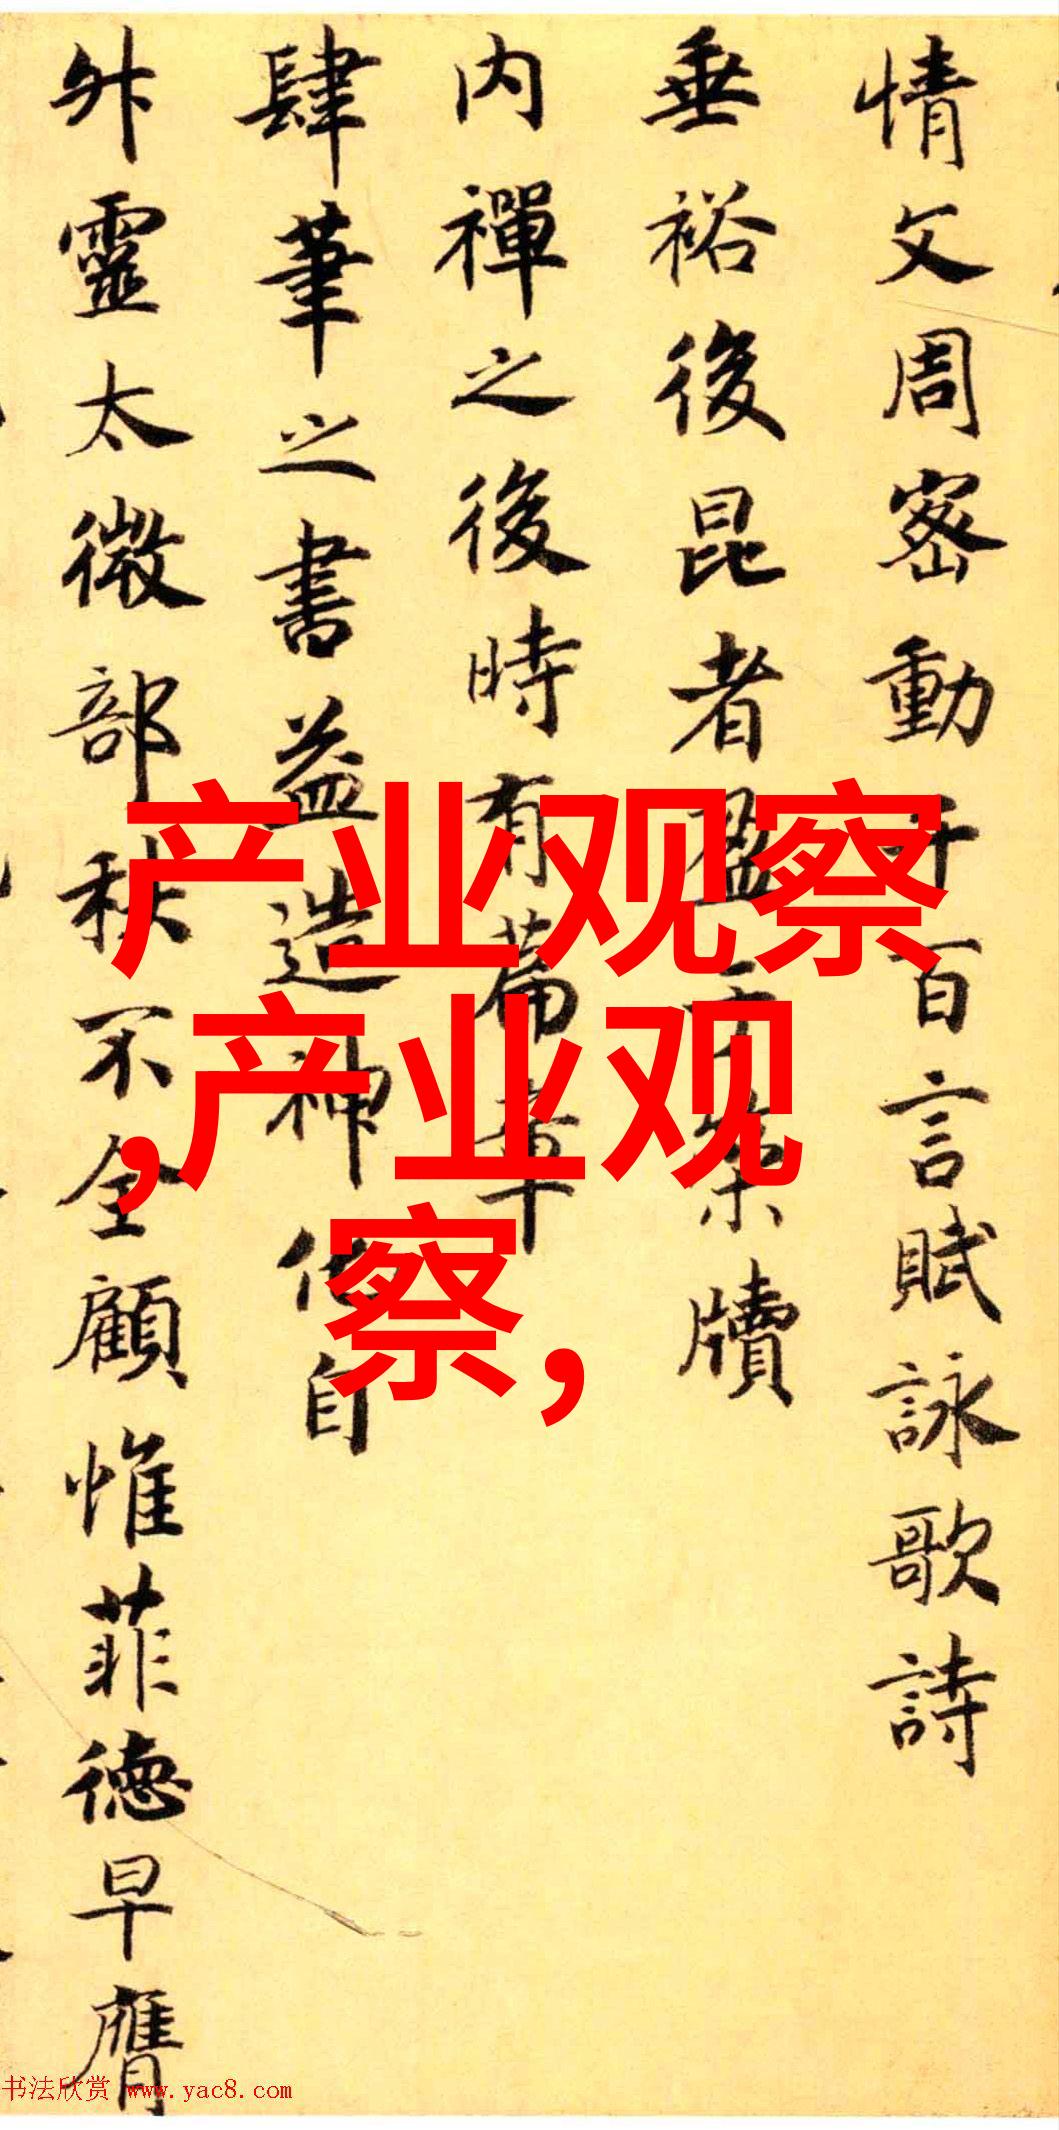 情文周密動千百言賦詠歌詩
垂裕後昆者盈于緗牘
内禪之後時有篇章
肆筆之書益造神化自
外靈太微部秩不全顧惟菲德早膺
产业观察
,产业观
察,
书法欣赏 www.yac8.com